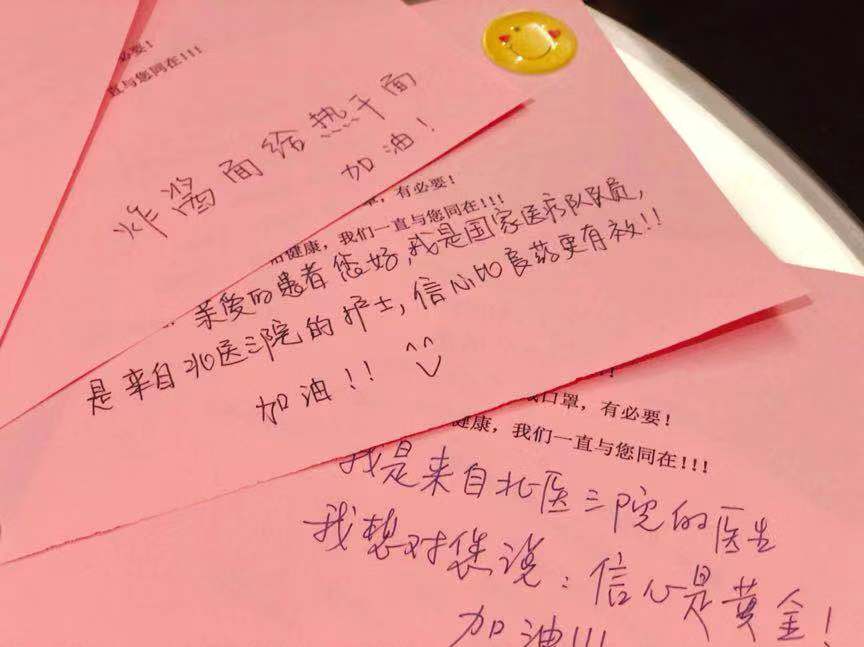 必要！
直与您同在!!!
炸酱面给热干面
加油！
，有必要！
健康，我们一直与您同在!!!
亲爱的患者您好，我是国家医疗队队员，
是来自北医三院的护士，信心比良药更有效!!
加油!!
口罩，有必要！
健康，我们一直与您同在!!!
我是来自北医三院的医生
我想对您说：信心是黄金！
加油!!!